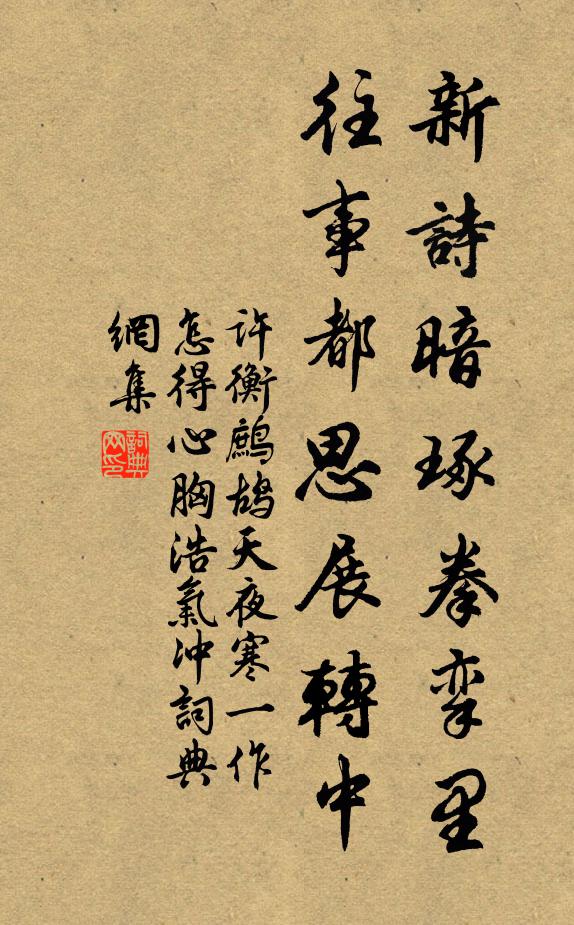 新詩暗琢拳攣里
往事都思展轉中
許衡鷓鴣天夜寒一作
怎得心胸浩氣沖詞典
網集
詞典網印